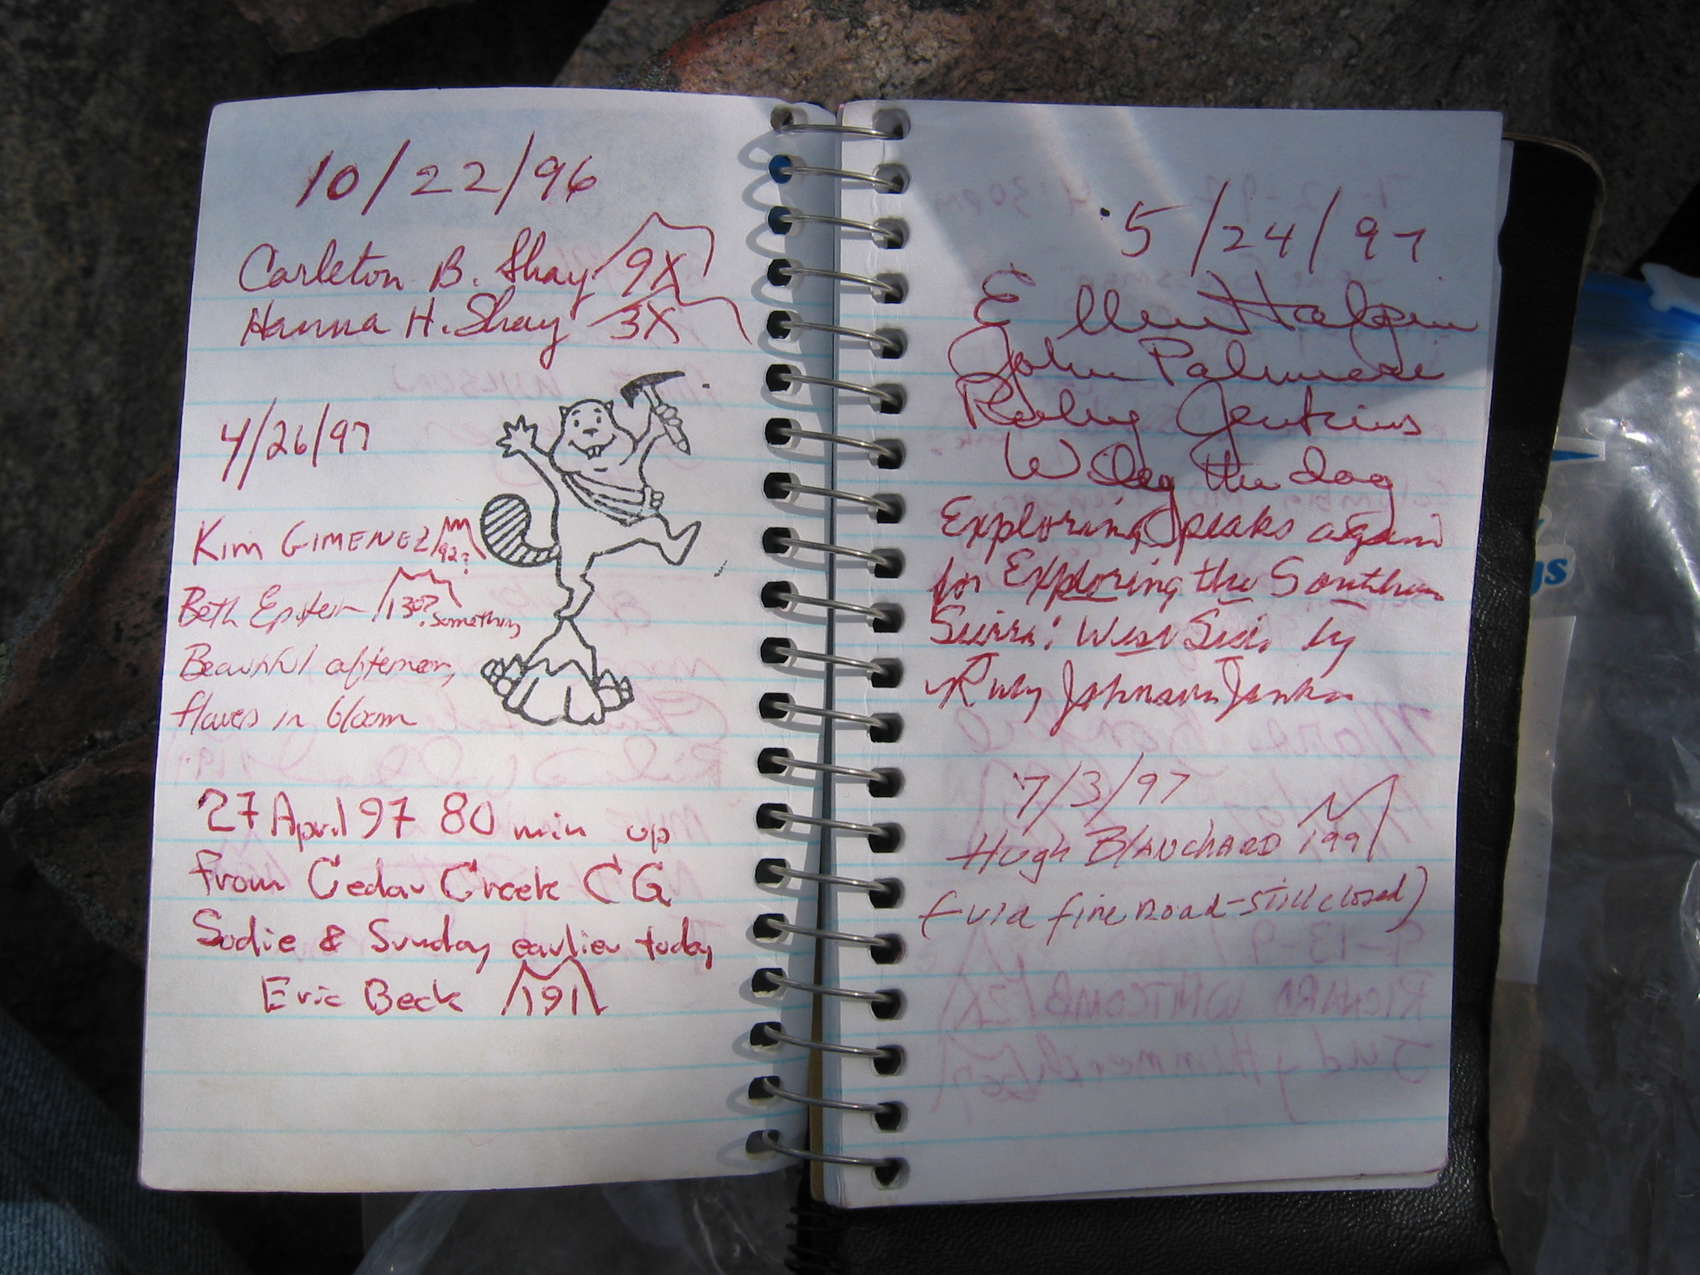 10/22/96
Carleton B. Shay 9X
Hanna H. Shay 3X
4/26/97
Kim GIMENEZ 92?
Beth Epstein 130? something
Beautiful afternoon,
flowers in bloom
27 April 97 80 min up
from Cedar Creek CG
Sadie & Sunday earlier today
Eric Beck 191
5/24/97
Ellen Halpin
John Palmieri
Ruby Jenkins
Wiley the dog
Exploring peaks again
for Exploring the Southern
Sierra: West Side by
Ruby Johnson Jenkins
7/3/97
Hugh BLANCHARD 199
(-via fire road-still closed)
gs